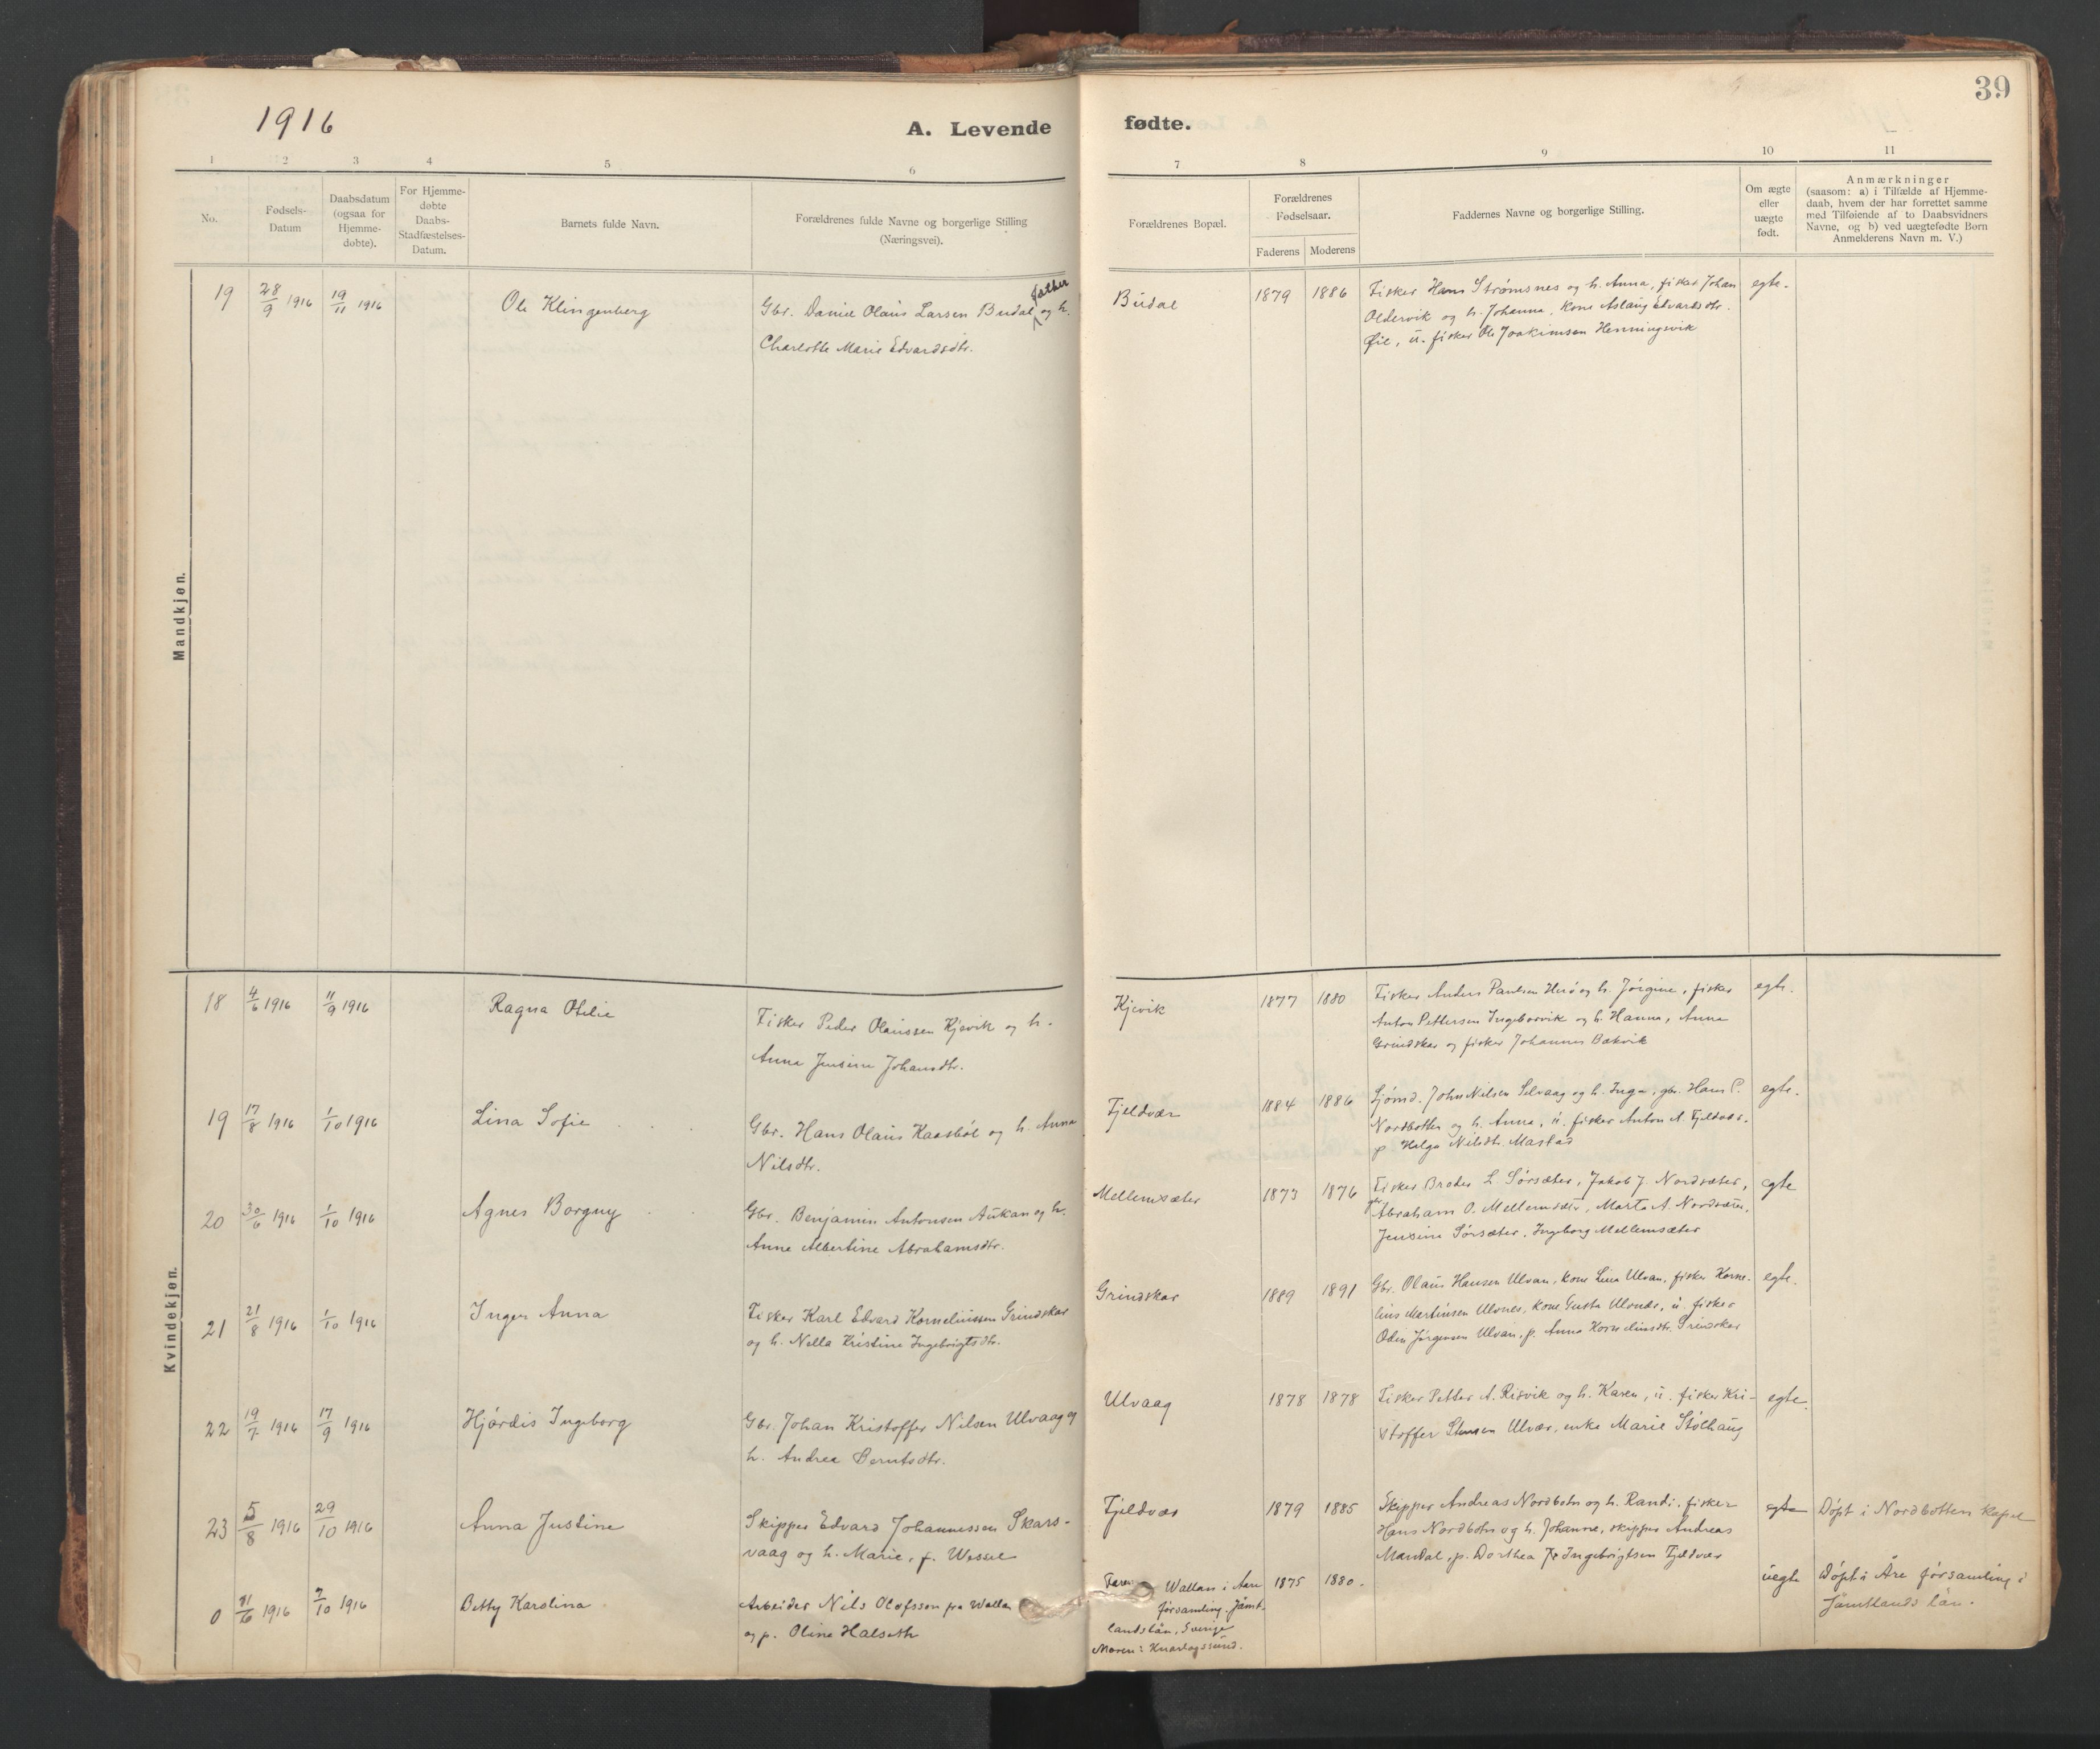 39
1916
A. Levende fødte.
1 2 3 4 5 6 7 8 9 10 11
No.
Fødsels-
Datum
Daabsdatum
(ogsaa for
Hjemme-
døbte).
For Hjemme-
døbte
Daabs-
Stadfæstelses-
Datum.
Barnets fulde Navn.
Forældrenes fulde Navne og borgerlige Stilling
(Næringsvei).
Forældrenes Bopæl.
Forældrenes
Fødselsaar.
Faderens Moderens
Faddernes Navne og borgerlige Stilling.
Om ægte
eller
uægte
født.
Anmærkninger
(saasom: a) i Tilfælde af Hjemme-
daab, hvem der har forrettet samme
med Tilføiende af to Daabsvidners
Navne, og b) ved uægtefødte Børn
Anmelderens Navn m. V.)
Mandkjøn.
19 28/9 1916 19/11 1916
Ole Klingenberg
Gbr. Daniel Olaus Larsen Budal og h.
Charlotte Marie Edvardsdtr.
Budal
1879 1886
Fisker Hans Strømsnes og h. Anna, fisker Johan
Oldervik og h. Johanna, kone Aslaug Edvardsdtr.
Øie, u. fisker Ole Joakimsen Henningsvik
egte.
Kvindekjøn.
18 4/6 1916 11/9 1916
Ragna Otilie
Fisker Peder Olaussen Kjevik og h.
Anna Jensine Johansdtr.
Kjevik
1877 1880
Fisker Anders Paulsen og h. Jørgine, fisker
Anton Pettersen Ingeborvik og h. Hanna, Anna
Grindskar og fisker Johannes Bakvik
egte.
19 17/8 1916 1/10 1916
Lina Sofie
Gbr. Hans Olaus Kaasbøl og h. Anna
Nilsdtr.
Fjeldvær
1884 1886
Sjømd. John Nilsen Selvaag og h. Inga, gbr. Hans P.
Nordbotten og h. Anna, u. fisker Anton A. Fjeldvær.
p Helga Nilsdtr. Mastad
egte.
20 30/6 1916 1/10 1916
Agnes Borgny
Gbr. Benjamin Antonsen Aukan og h.
Anne Albertine Abrahamsdtr.
Mellemsæter
1873 1876
Fisker L. Sørsæter, Jakob J. Nordsæter,
gbr Abraham O. Mellemsæter, Marta A. Nordsæter,
Jensine Sørsæter, Ingeborg Mellemsæter
egte
21 21/8 1916 1/10 1916
Inger Anna
Fisker Karl Edvard Korneliussen Grindskar
og h. Nella Kristine Ingebrigtsdtr.
Grindskar
1889 1891
Gbr. Olaus Hansen Ulvan, kone Lina Ulvan, fisker Korne-
lius Martinsen Ulvnes, kone Gusta Ulvnes, u. fisker
Odin Jørgensen Ulvan, p. Anna Korneliusdtr. Grindskar
egte.
22 19/7 1916 17/9 1916
Hjørdis Ingeborg
Gbr. Johan Kristoffer Nilsen Ulvaag og
h. Andrea Berntsdtr.
Ulvaag
1878 1878
Fisker Petter A. Risvik og h. Karen, u. fisker Kri-
stoffer Ulvær, enke Marie Stølhaug
egte.
23 5/8 1916 29/10 1916
Anna Justine
Skipper Edvard Johannessen Skars-
vaag og h. Marie, f. Wessel
Fjeldvær
1879 1885
Skipper Andreas Nordbotn og h. Randi, fisker
Hans Nordbotn og h. Johanne, skipper Andreas
Mandal, p. Dorthea Ingebrigtsen Fjeldvær
egte
Døpt i Nordbotten kapel
0 11/6 1916 2/10 1916
Betty Karolina
Arbeider Nils Olofsson fra Wallan
og p. Oline Halseth
Faren Wallan i Aare
församling, Jämt-
lands län, Sverige
Moren: Knarlagssund.
1875 1880.
uegte
Døpt i Åre församling i
Jämtlands län.